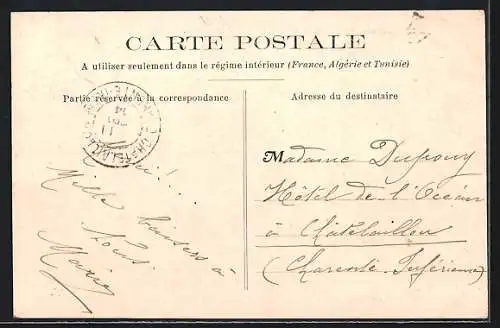 CARTE POSTALE
A utiliser seulement dans le régime intérieur (France, Algérie et Tunisie)
Partie réservée à la correspondance
Adresse du destinataire
CHATELAILLON
11
Mille baisers à
tous
Madame Dupouy
Hôtel de l'Océan
à Châtelaillon
(Charente Inférieure)